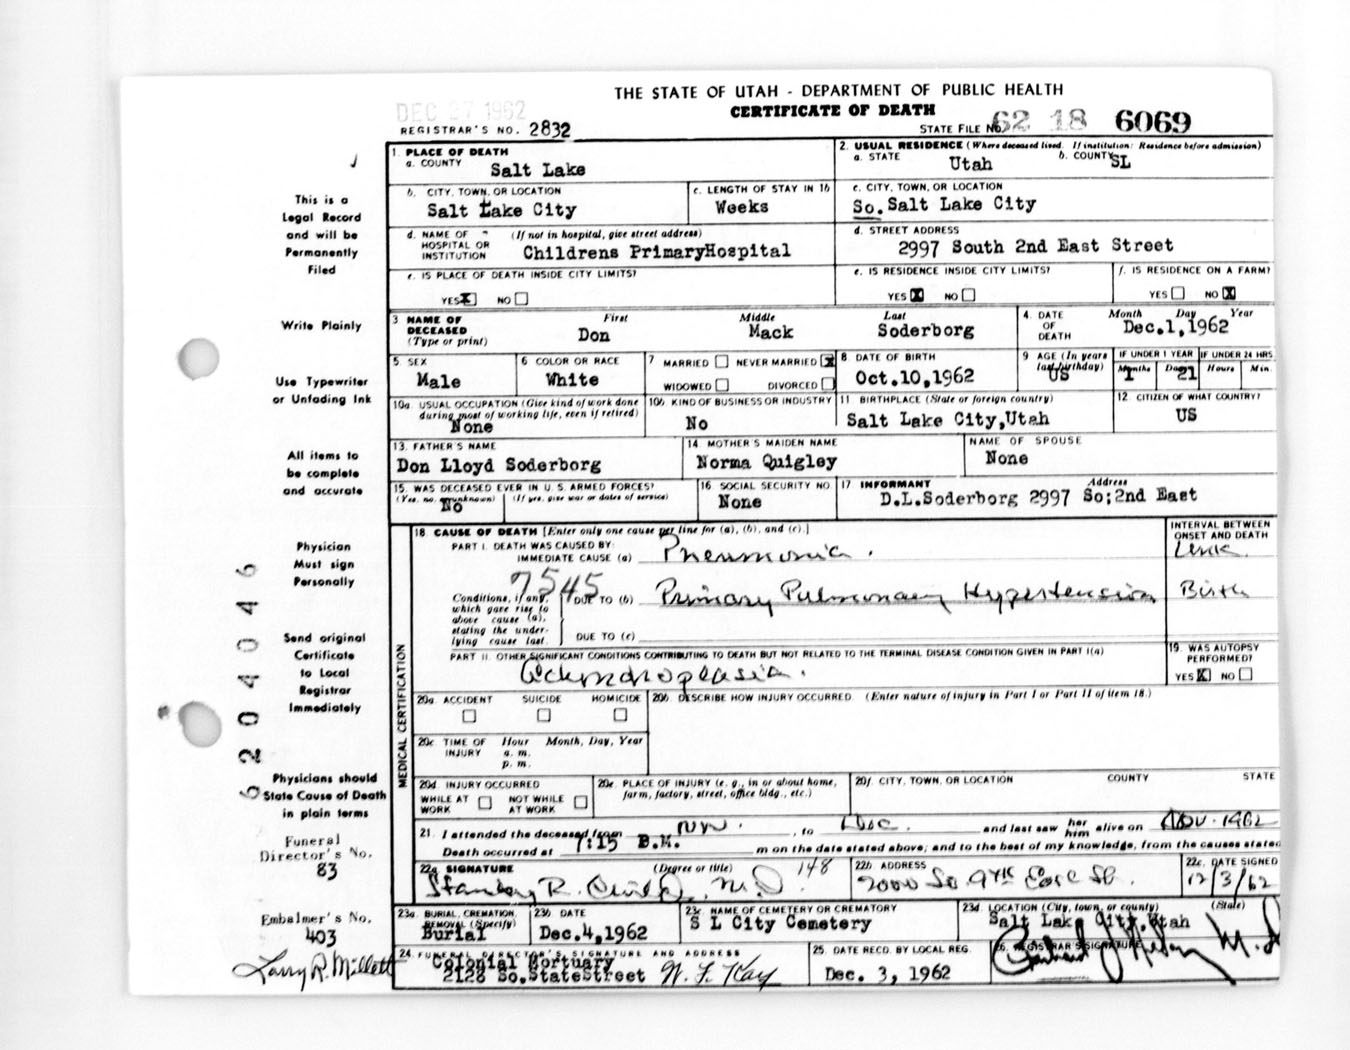 THE STATE OF UTAH - DEPARTMENT OF PUBLIC HEALTH
DEC 27 1962
CERTIFICATE OF DEATH
REGISTRAR'S NO. 2832
STATE FILE NO. 62 18 6069
This is a
Legal Record
and will be
Permanently
Filed
Write Plainly
Use Typewriter
or Unfading Ink
All items to
be complete
and accurate
Physician
Must sign
Personally
Send original
Certificate
to Local
Registrar
Immediately
Physicians should
State Cause of Death
in plain terms
Funeral
Director's No.
83
Embalmer's No.
403
Larry R. Millett
6204046
1. PLACE OF DEATH
a. COUNTY
Salt Lake
2. USUAL RESIDENCE (Where deceased lived. If institution: Residence before admission)
a. STATE Utah b. COUNTY SL
b. CITY, TOWN, OR LOCATION
Salt Lake City
c. LENGTH OF STAY IN 1b
Weeks
c. CITY, TOWN, OR LOCATION
So. Salt Lake City
d. NAME OF (If not in hospital, give street address)
HOSPITAL OR
INSTITUTION Childrens PrimaryHospital
d. STREET ADDRESS
2997 South 2nd East Street
e. IS PLACE OF DEATH INSIDE CITY LIMITS?
YES X NO
e. IS RESIDENCE INSIDE CITY LIMITS?
YES X NO
f. IS RESIDENCE ON A FARM?
YES NO X
3. NAME OF DECEASED (Type or print)
First Middle Last
Don Mack Soderborg
4. DATE OF DEATH
Month Day Year
Dec.1,1962
5. SEX
Male
6. COLOR OR RACE
White
7. MARRIED NEVER MARRIED X
WIDOWED DIVORCED
8. DATE OF BIRTH
Oct.10,1962
9. AGE (In years last birthday)
US
IF UNDER 1 YEAR IF UNDER 24 HRS.
Months Days Hours Min.
1 21
10a. USUAL OCCUPATION (Give kind of work done during most of working life, even if retired)
None
10b. KIND OF BUSINESS OR INDUSTRY
No
11. BIRTHPLACE (State or foreign country)
Salt Lake City,Utah
12. CITIZEN OF WHAT COUNTRY?
US
13. FATHER'S NAME
Don Lloyd Soderborg
14. MOTHER'S MAIDEN NAME
Norma Quigley
NAME OF SPOUSE
None
15. WAS DECEASED EVER IN U.S. ARMED FORCES?
(Yes, no, or unknown) (If yes, give war or dates of service)
No
16. SOCIAL SECURITY NO.
None
17. INFORMANT Address
D.L.Soderborg 2997 So;2nd East
18. CAUSE OF DEATH [Enter only one cause per line for (a), (b), and (c).]
INTERVAL BETWEEN
ONSET AND DEATH
PART I. DEATH WAS CAUSED BY:
IMMEDIATE CAUSE (a) Pneumonia.
7545
Conditions, if any, which gave rise to above cause (a), stating the underlying cause last.
DUE TO (b) Primary Pulmonary Hypertension Birth
DUE TO (c)
PART II. OTHER SIGNIFICANT CONDITIONS CONTRIBUTING TO DEATH BUT NOT RELATED TO THE TERMINAL DISEASE CONDITION GIVEN IN PART I(a)
Achondroplasia.
19. WAS AUTOPSY PERFORMED?
YES X NO
20a. ACCIDENT SUICIDE HOMICIDE
20b. DESCRIBE HOW INJURY OCCURRED. (Enter nature of injury in Part I or Part II of item 18.)
20c. TIME OF INJURY Hour Month, Day, Year
a. m.
p. m.
20d. INJURY OCCURRED
WHILE AT WORK NOT WHILE AT WORK
20e. PLACE OF INJURY (e. g., in or about home, farm, factory, street, office bldg., etc.)
20f. CITY, TOWN, OR LOCATION COUNTY STATE
21. I attended the deceased from Nov. , to Dec. and last saw her him alive on Nov. 1962
Death occurred at 7:15 P.M. m on the date stated above; and to the best of my knowledge, from the causes stated
MEDICAL CERTIFICATION
22a. SIGNATURE (Degree or title) 148
Stanley R. M.D.
22b. ADDRESS
2000 So. 9th East St.
22c. DATE SIGNED
12/3/62
23a. BURIAL, CREMATION, REMOVAL (Specify)
Burial
23b. DATE
Dec.4,1962
23c. NAME OF CEMETERY OR CREMATORY
S L City Cemetery
23d. LOCATION (City, town, or county) (State)
Salt Lake City,Utah
24. FUNERAL DIRECTOR'S SIGNATURE AND ADDRESS
Colonial Mortuary
2128 So.StateStreet W. F. Kay
25. DATE RECD. BY LOCAL REG.
Dec. 3, 1962
26. REGISTRAR'S SIGNATURE
M.D.